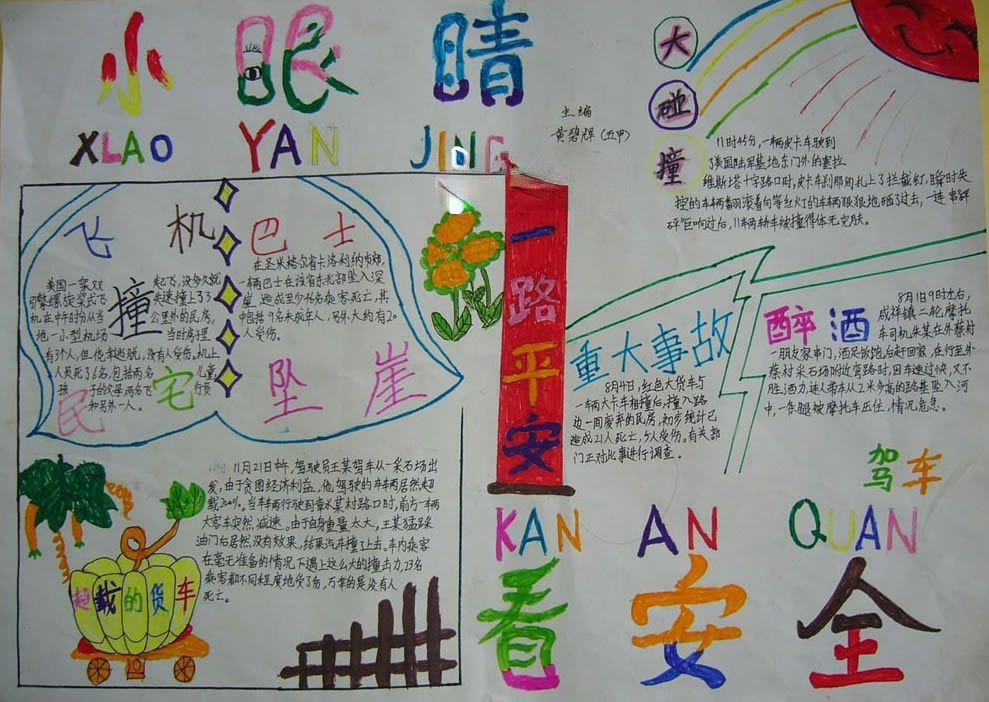 小眼睛
XLAO YAN JING
主编
黄碧辉（五甲）
大碰撞
11时45分，一辆皮卡车驶到
了美国陆军基地东门外的塞拉
维斯塔十字路口时，皮卡车刹那间扎上了拦截钉，瞬时失
控的车辆翻滚着向等红灯的车辆狠狠地砸了过去，一连串砰
砰巨响过后，11车辆轿车被撞得体无完肤。
飞机撞民宅
美国一架双
引擎螺旋桨式飞
机在中午时分从当
地一小型机场
起飞，没多久就
失速撞上3
公里外的民房，
当时房里
有3个人，但侥幸逃脱，没有人受伤。机上
人员死36名，包括两名儿童
巴士坠崖
在圣米格尔省卡洛利纳市郊，
一辆巴士在该省东北部坠入深
崖，造成至少14名乘客死亡，其
中包括9名未成年人，另外大约有20
人受伤。
一路平安
重大事故
8月4日，红色大货车与
一辆大卡车相撞后，撞入路
边一间废弃的民房，初步统计已
造成21人死亡，5人受伤。有关部
门正对此事进行调查。
醉酒驾车
8月1日9时左右，
成祥镇二轮摩托
车司机朱某在外蔡村
一朋友家串门，酒足饭饱后赶回家，在行至外
蔡村采石场附近弯路时，因车速过快，又不
胜酒力，连人带车从2米多高的路基坠入河
中，一条腿被摩托车压住，情况危急。
超载的货车
11月21日中午，驾驶员王某驾车从一采石场出
发，由于贪图经济利益，他驾驶的车辆居然超
载200%。当车辆行驶到漳水某村路口时，前方一辆
大客车突然减速。由于自身重量太大，王某猛踩
油门后居然没有效果，结果汽车撞了上去。车内乘客
在毫无准备的情况下遇上这么大的撞击力，23名
乘客都不同程度地受了伤，万幸的是没有人
死亡。
KAN AN QUAN
看安全